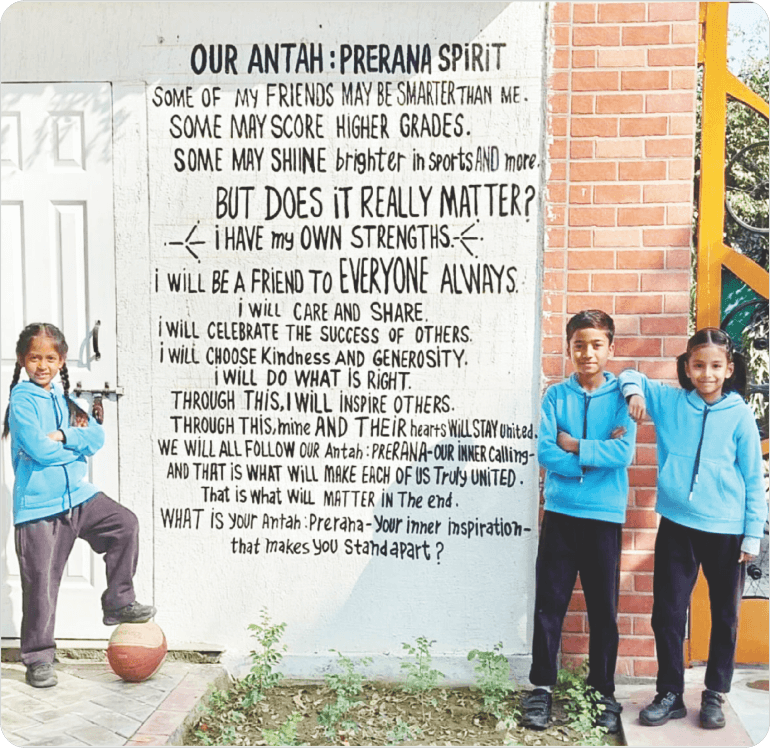 OUR ANTAH : PRERANA SPiRiT
SOME OF MY FRIENDS MAY BE SMARTER THAN ME.
SOME MAY SCORE HIGHER GRADES.
SOME MAY SHINE brighter in sports AND more.
BUT DOES iT REALLY MATTER?
i HAVE my OWN STRENGTHS.
i WILL BE A FRiEND TO EVERYONE ALWAYS.
i WiLL CARE AND SHARE.
i WILL CELEBRATE THE SUCCESS OF OTHERS.
i WILL CHOOSE Kindness AND GENEROSITY.
i WILL DO WHAT iS RiGHT.
THROUGH THIS, I WILL INSPIRE OTHERS.
THROUGH THIS, mine AND THEiR hearts WILL STAY united.
WE WILL ALL FOLLOW OUR Antah : PRERANA-OUR INNER Calling-
AND THAT is WHAT WiLL MAKE EACH OF US Truly UNITED.
That is what WiLL MATTER in The end.
WHAT iS your Antah : Prerana- Your inner inspiration-
that makes you Stand apart?